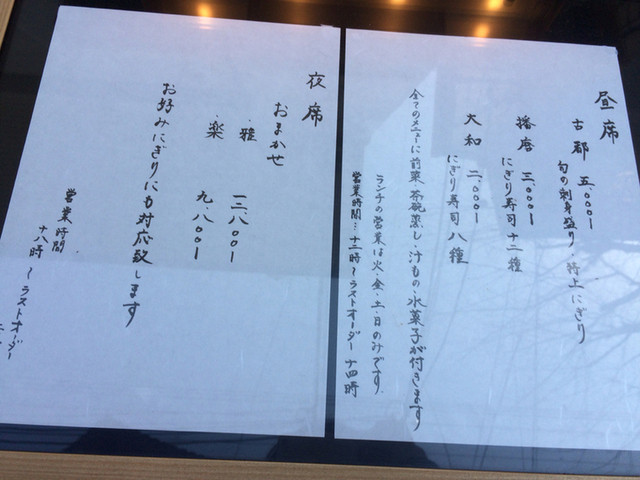 昼席
古都 五、〇〇〇ー
旬の刺身盛り・特上にぎり
播磨 三、〇〇〇ー
にぎり寿司十二種
大和 二、〇〇〇ー
にぎり寿司八種
全てのメニューに前菜・茶碗蒸し・汁もの・水菓子が付きます
ランチの営業は火・金・土・日のみです。
営業時間…十二時〜ラストオーダー 十四時
夜席
おまかせ
・雅 一二、八〇〇ー
・楽 九、八〇〇ー
お好みにぎりにも対応致します
営業時間
十八時〜ラストオーダー